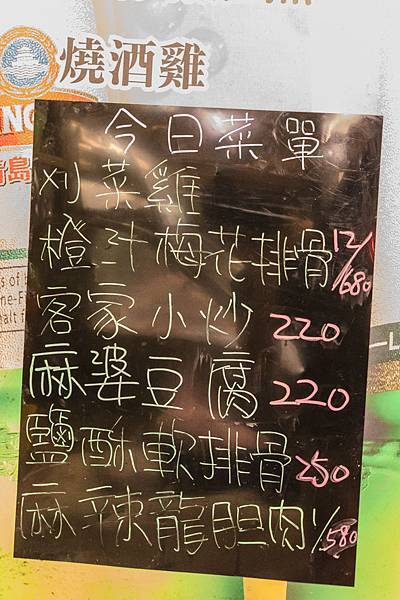 燒酒雞
NG
島
今日菜單
刈菜雞
橙汁梅花排骨 12/680
客家小炒 220
麻婆豆腐 220
鹽酥軟排骨 250
麻辣龍胆肉 1/580